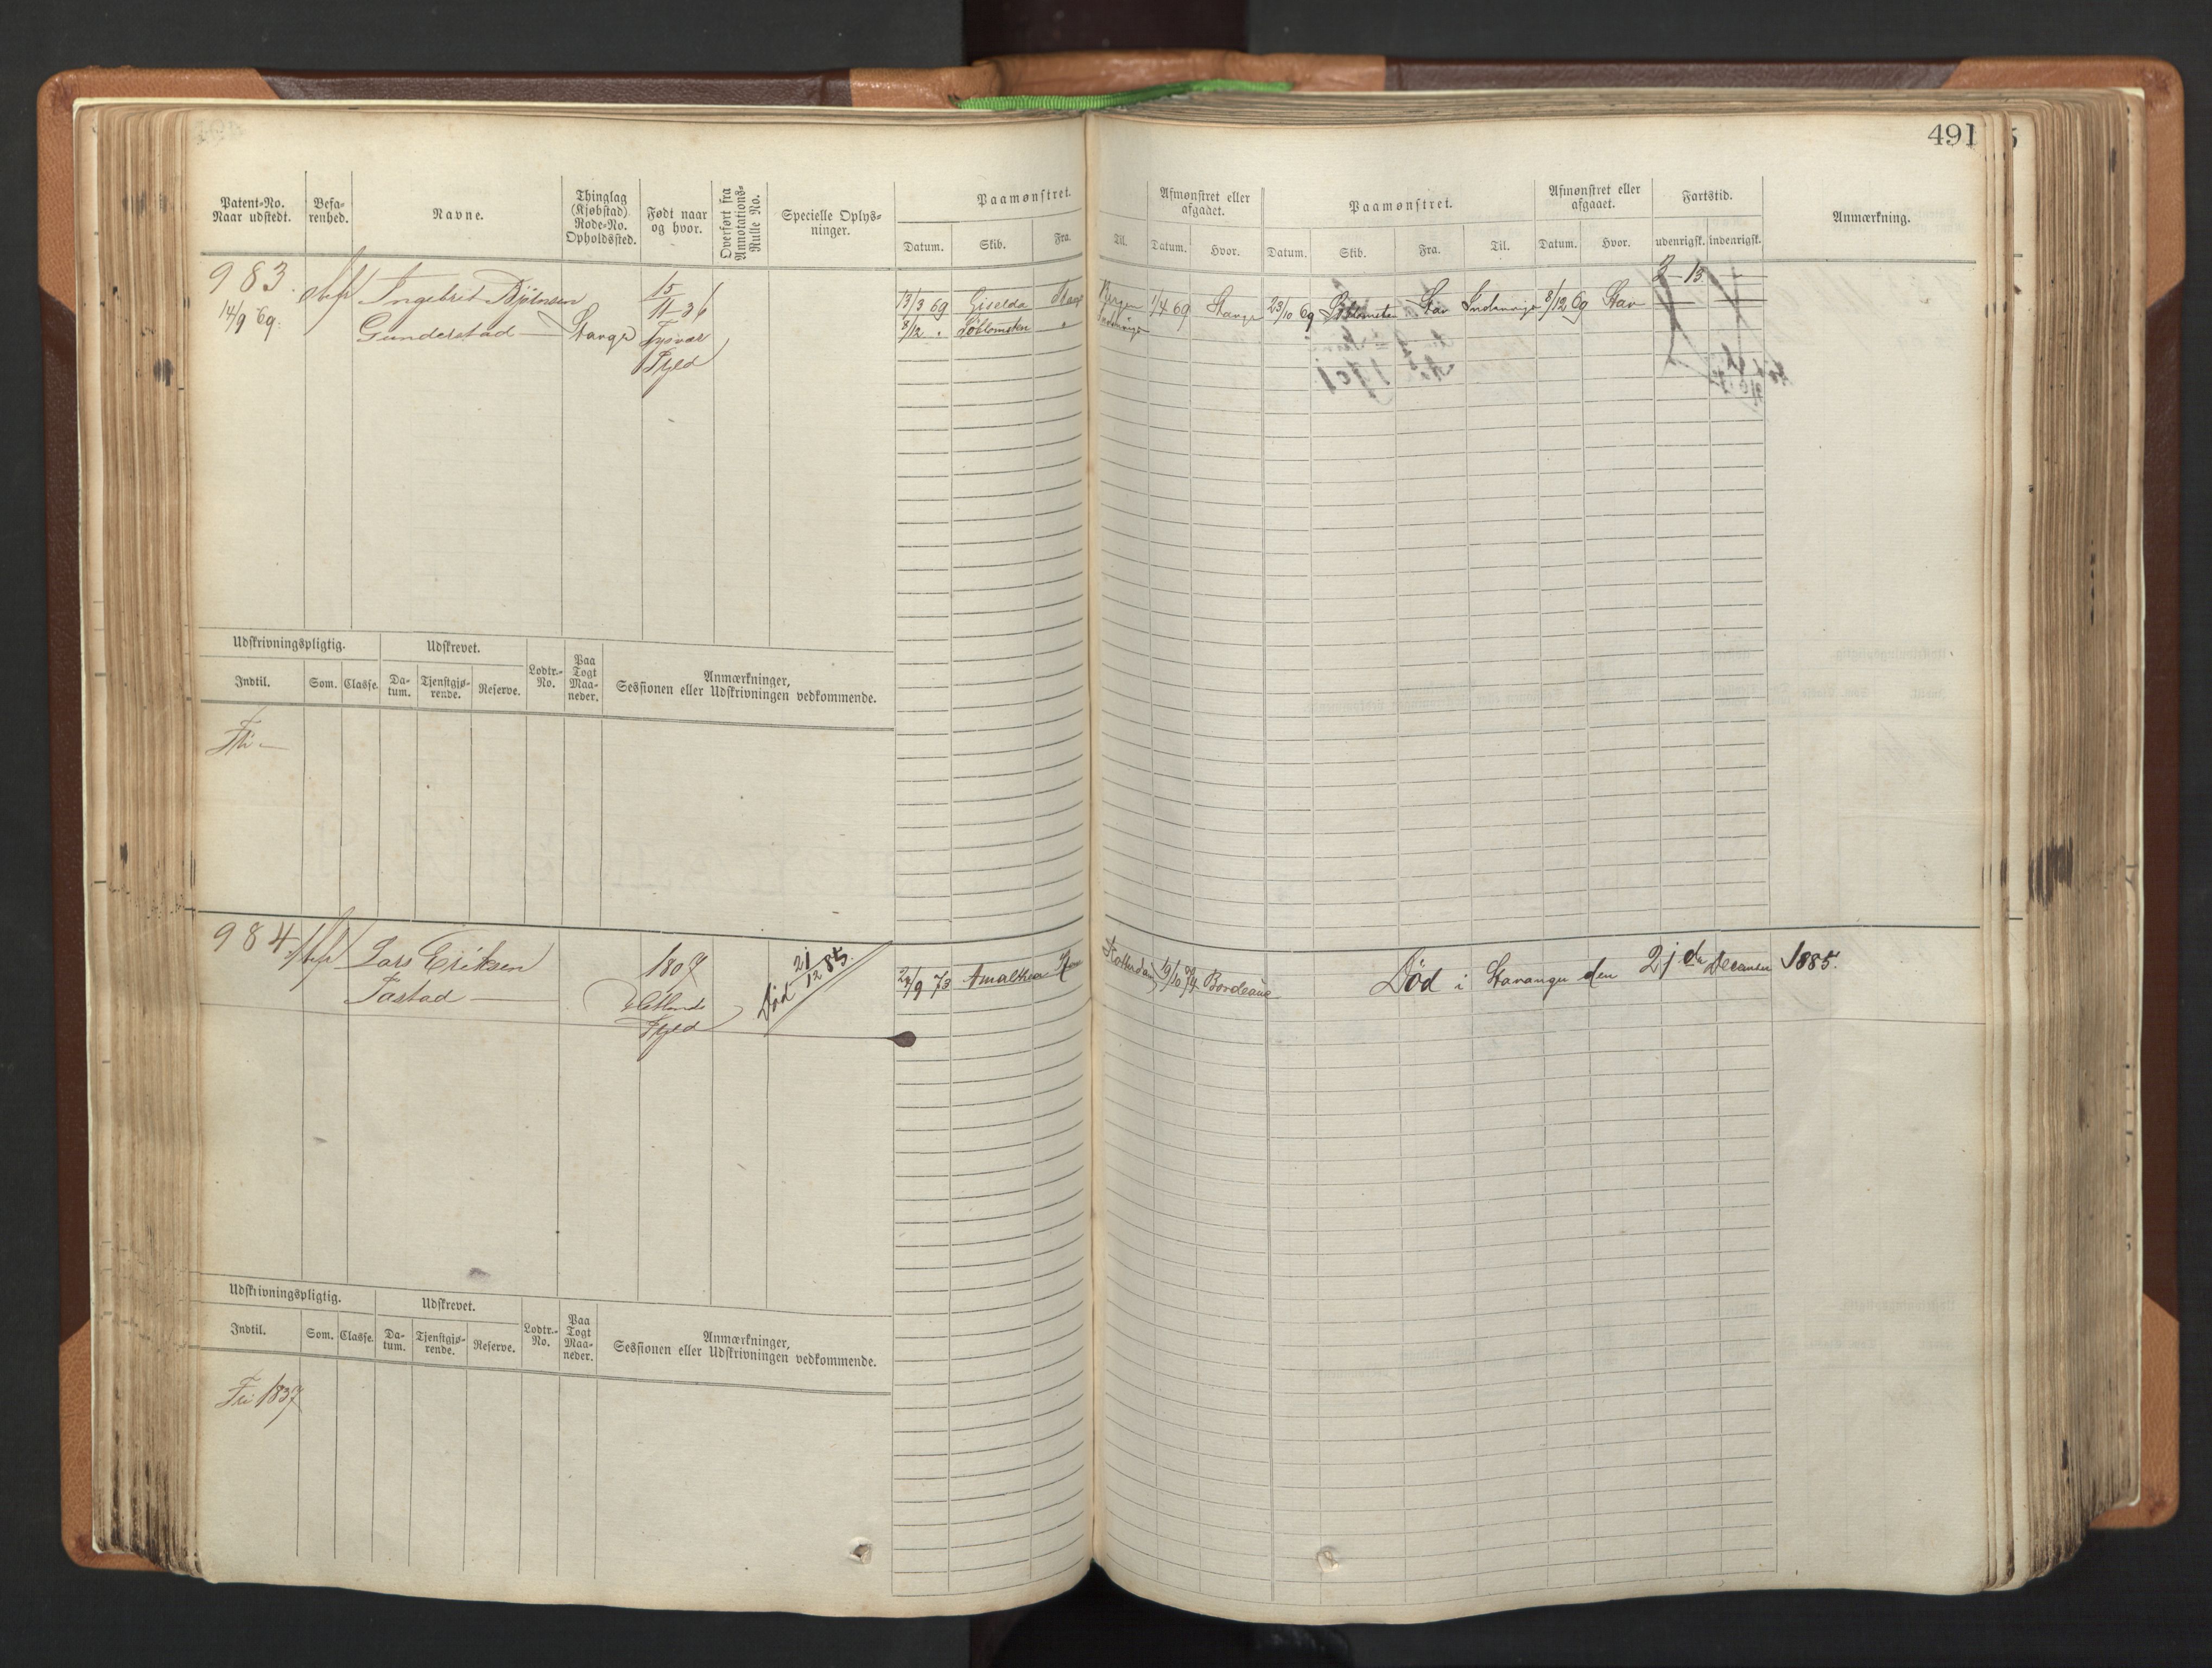 491
Patent-No. Naar udstedt.
Befa-renhed.
Navne.
Thinglag (Kjøbstad) Rode-No. Opholdssted.
Født naar og hvor.
Overført fra Annotations-Rulle No.
Specielle Oplys-ninger.
Paamønstret.
Datum. Skib. Fra. Til.
Afmønstret eller afgaaet.
Datum. Hvor.
Paamønstret.
Datum. Skib. Fra. Til.
Afmønstret eller afgaaet.
Datum. Hvor.
Fartstid.
udenrigsk. indenrigsk.
Anmærkning.
983.
14/9 69.
Ingebrit Bjørnsen
Gunderstad
Stavgr
15
11 36
Tysvær
Pgld
13/3 69 Giselda Stavgr Bergen 1/4 69 Stavgr 23/10 69 Stav Indenrigs 8/12 69 Stav
8/12 " Søblomsten " Indenrigs
2 13
Udskrivningspligtig.
Udskrevet.
Indtil. Som. Classe. Da-tum. Tjenstgjø-rende. Reserve. Lodtr.-No. Paa Togt Maa-neder.
Anmærkninger,
Sessionen eller Udskrivningen vedkommende.
Fri
984.
Lars Eriksen
Tastad
1807
Hetlands
Pgld
Død 21/12 85.
Amalthea Rotterdam 19/10 74 Bordeaux
Død i Stavanger den 21de December 1885.
Udskrivningspligtig.
Udskrevet.
Indtil. Som. Classe. Da-tum. Tjenstgjø-rende. Reserve. Lodtr.-No. Paa Togt Maa-neder.
Anmærkninger,
Sessionen eller Udskrivningen vedkommende.
Fri 1837